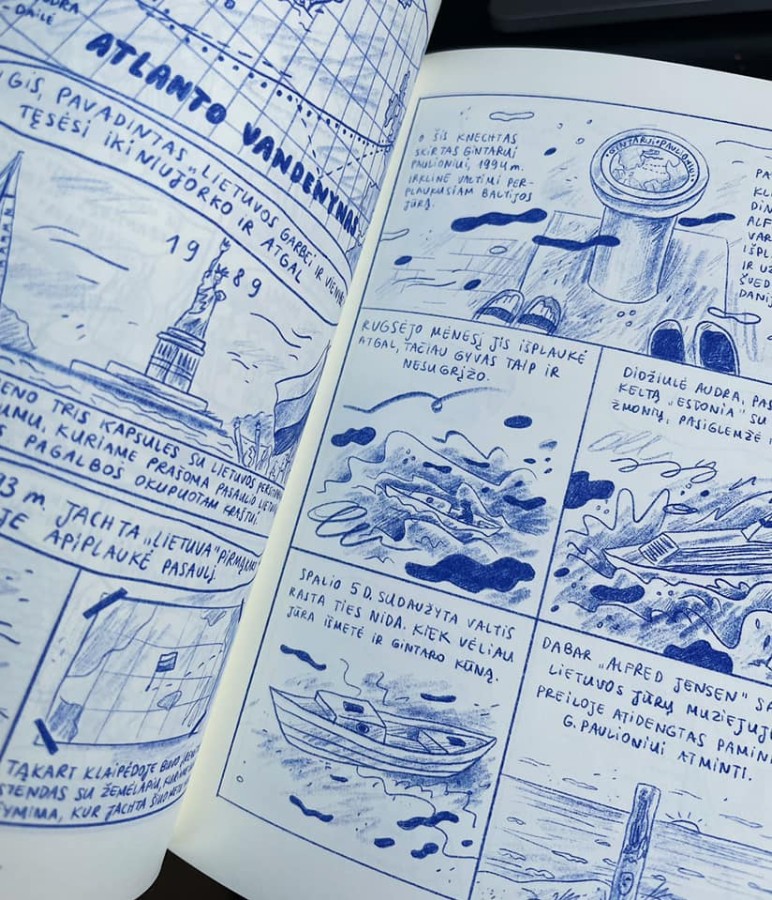 DAILĖ
ATLANTO VANDENYNAS
GIS, PAVADINTAS „LIETUVOS GARBEI IR
TĘSĖSI IKI NIUJORKO IR ATGAL
1989
TRIS KAPSULES SU LIETUVOS
KURIAME PRAŠOMA PASAULIO
PAGALBOS OKUPUOTAM KRAŠTUI.
93 M. JACHTA „LIETUVA"
APIPLAUKĖ PASAULĮ.
TĄKART KLAIPĖDOJE BUVO
STENDAS SU ŽEMĖLAPIU, KURIAME
KUR JACHTA
ŠIS KNECHTAS
SKIRTAS GINTARUI
PAULIONIUI, 1994 m.
IRKLINE VALTIMI PER-
PLAUKUSIAM BALTIJOS
JŪRĄ.
GINTARUI PAULIONIUI
RUGSĖJO MĖNESĮ JIS IŠPLAUKĖ
ATGAL, TAČIAU GYVAS TAIP IR
NESUGRĮŽO.
DIDŽIULĖ AUDRA,
KELTĄ „ESTONIA" SU
ŽMONIŲ, PASIGLEMŽĖ
SPALIO 5 D. SUDAUŽYTA VALTIS
RASTA TIES NIDA. KIEK VĖLIAU
JŪRA IŠMETĖ IR GINTARO KŪNĄ.
DABAR „ALFRED JENSEN"
LIETUVOS JŪRŲ MUZIEJUJE
PREILOJE ATIDENGTAS
G. PAULIONIUI ATMINTI.